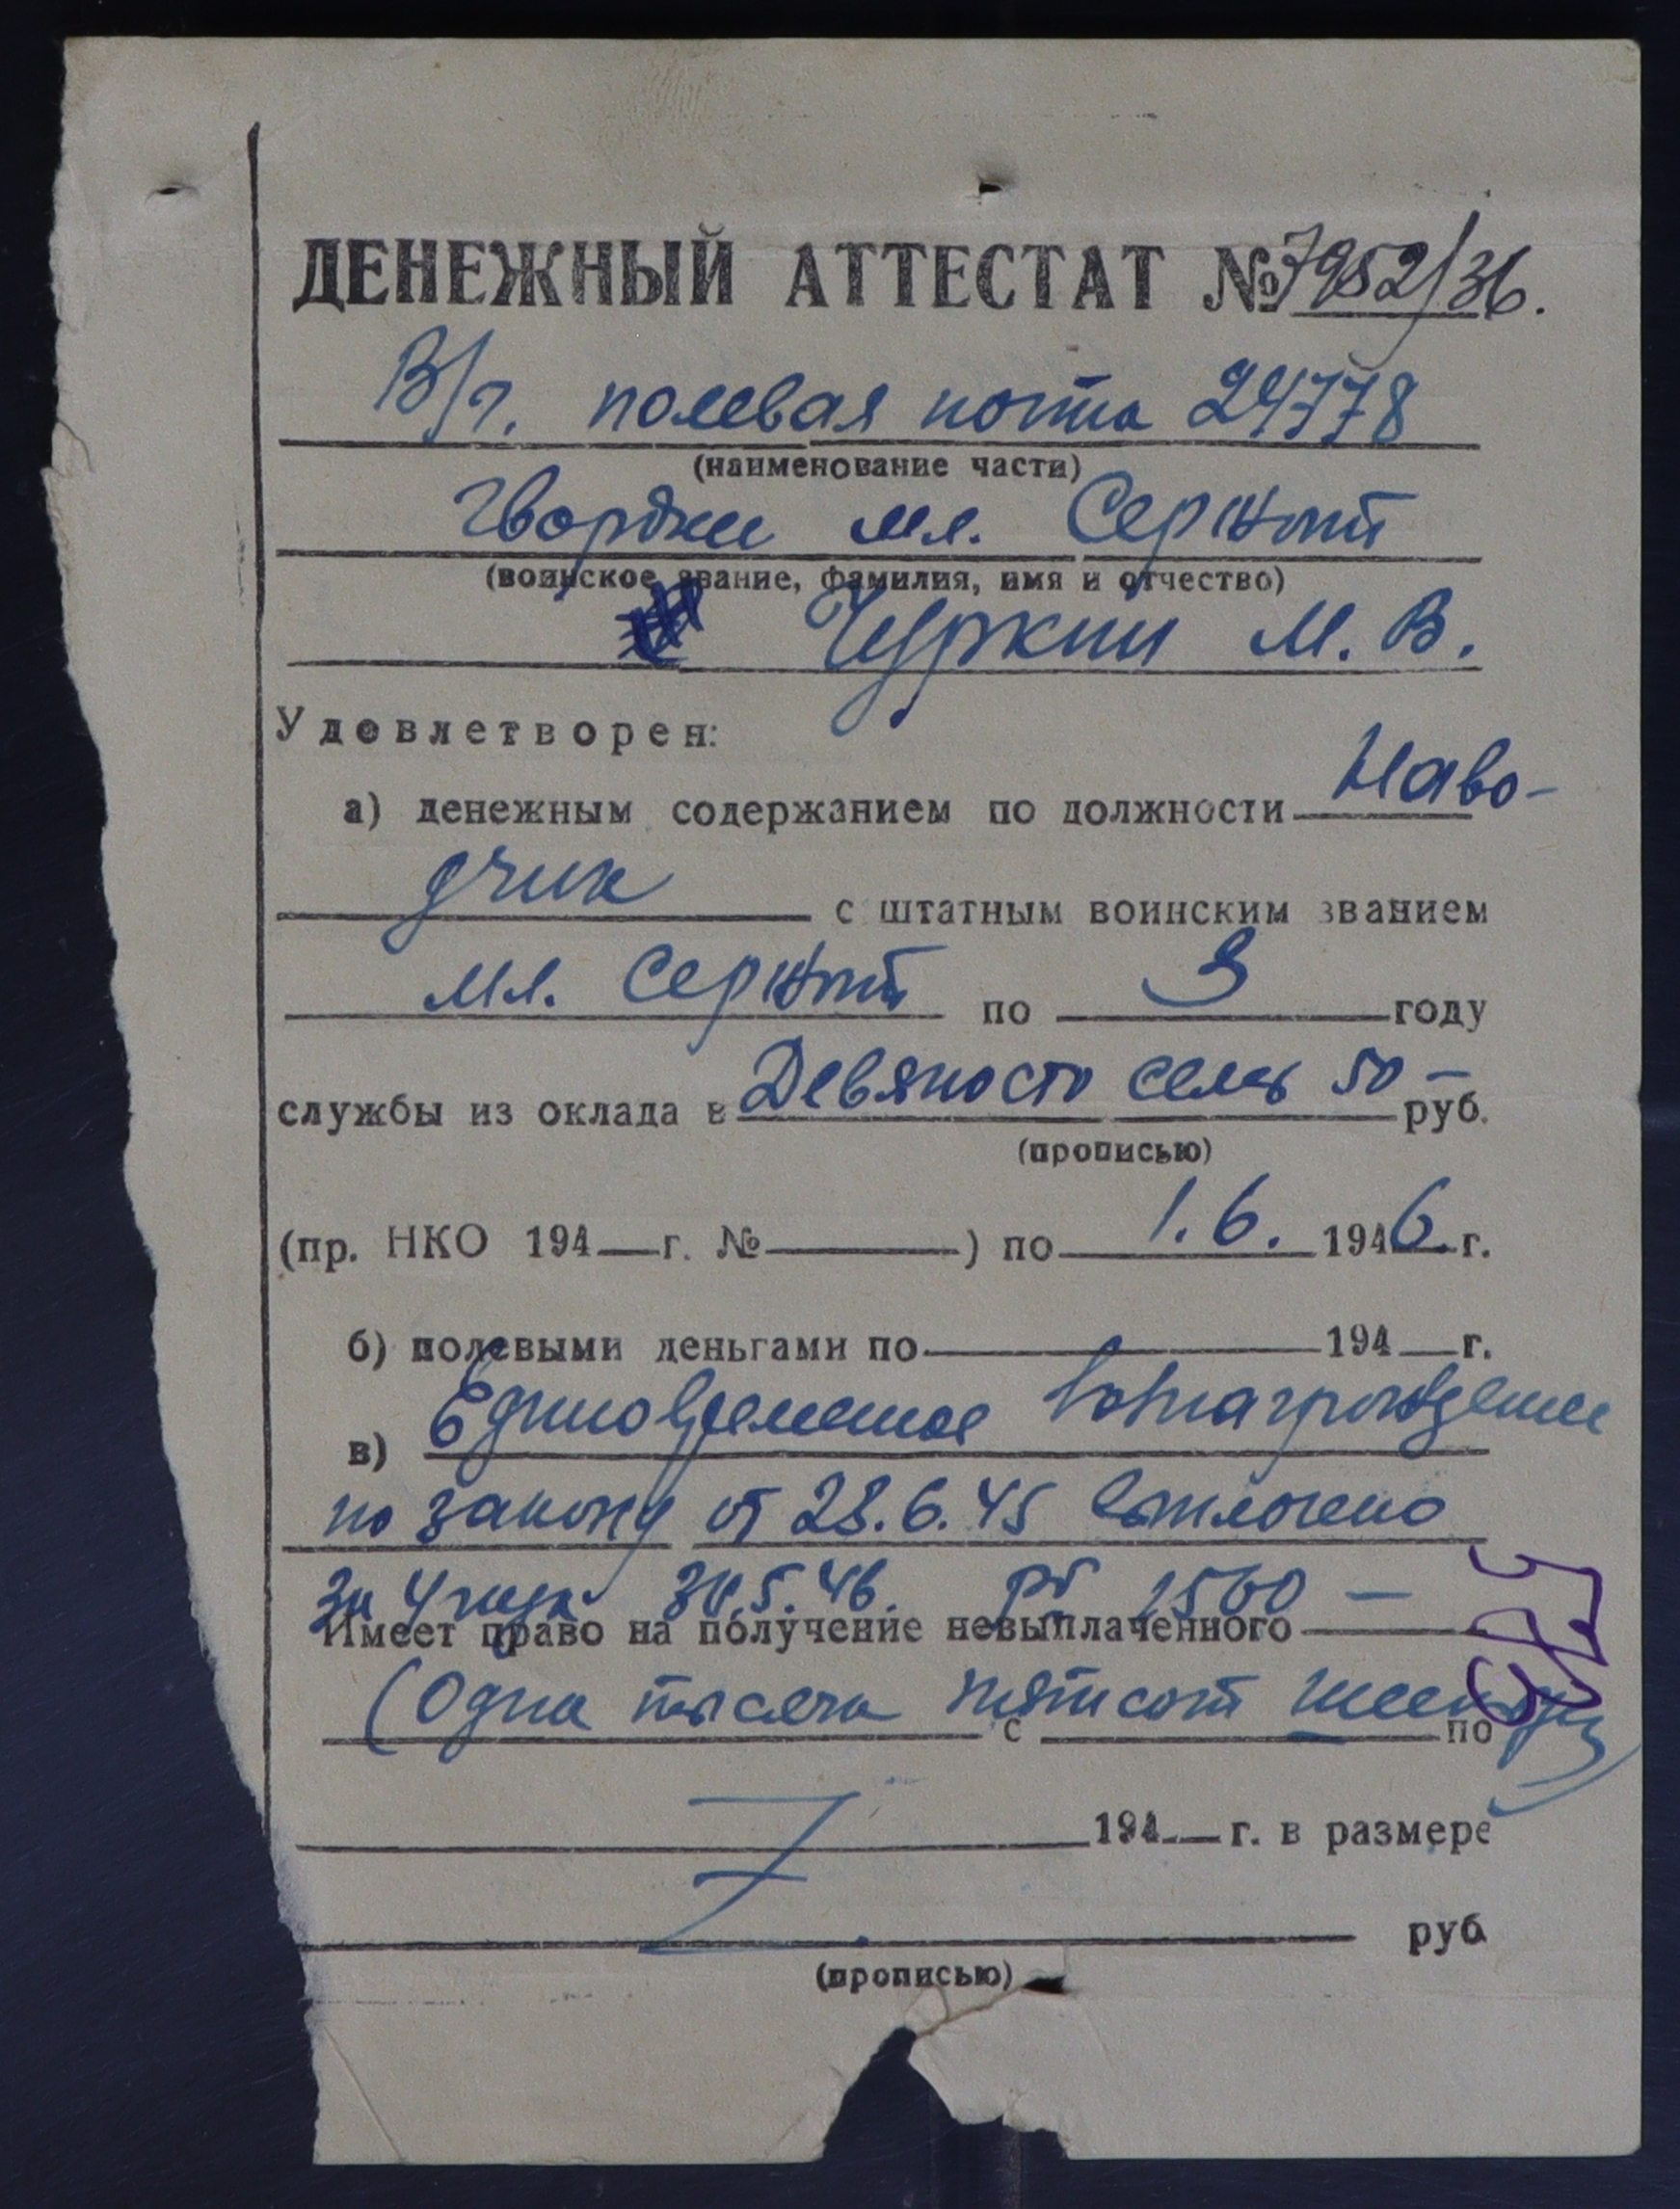 ДЕНЕЖНЫЙ АТТЕСТАТ № 7952/36.
В/ч. полевая почта 24778
(наименование части)
Гвардии мл. Сержант
(воинское звание, фамилия, имя и отчество)
Чуркин М. В.
Удовлетворен:
а) денежным содержанием по должности Наво-
дчик с штатным воинским званием
мл. Сержант по 3 году
службы из оклада в Девяносто семь 50 — руб.
(прописью)
(пр. НКО 194 г. № ) по 1.6. 1946. г.
б) полевыми деньгами по 194 г.
в) Единовременное вознаграждение
по закону от 23.6.45 выплочено
за 4 года 30.5.46. рб 1560 —
Имеет право на получение невыплаченного
(Одна тысяча пятьсот с по
194 г. в размере
руб
(прописью)